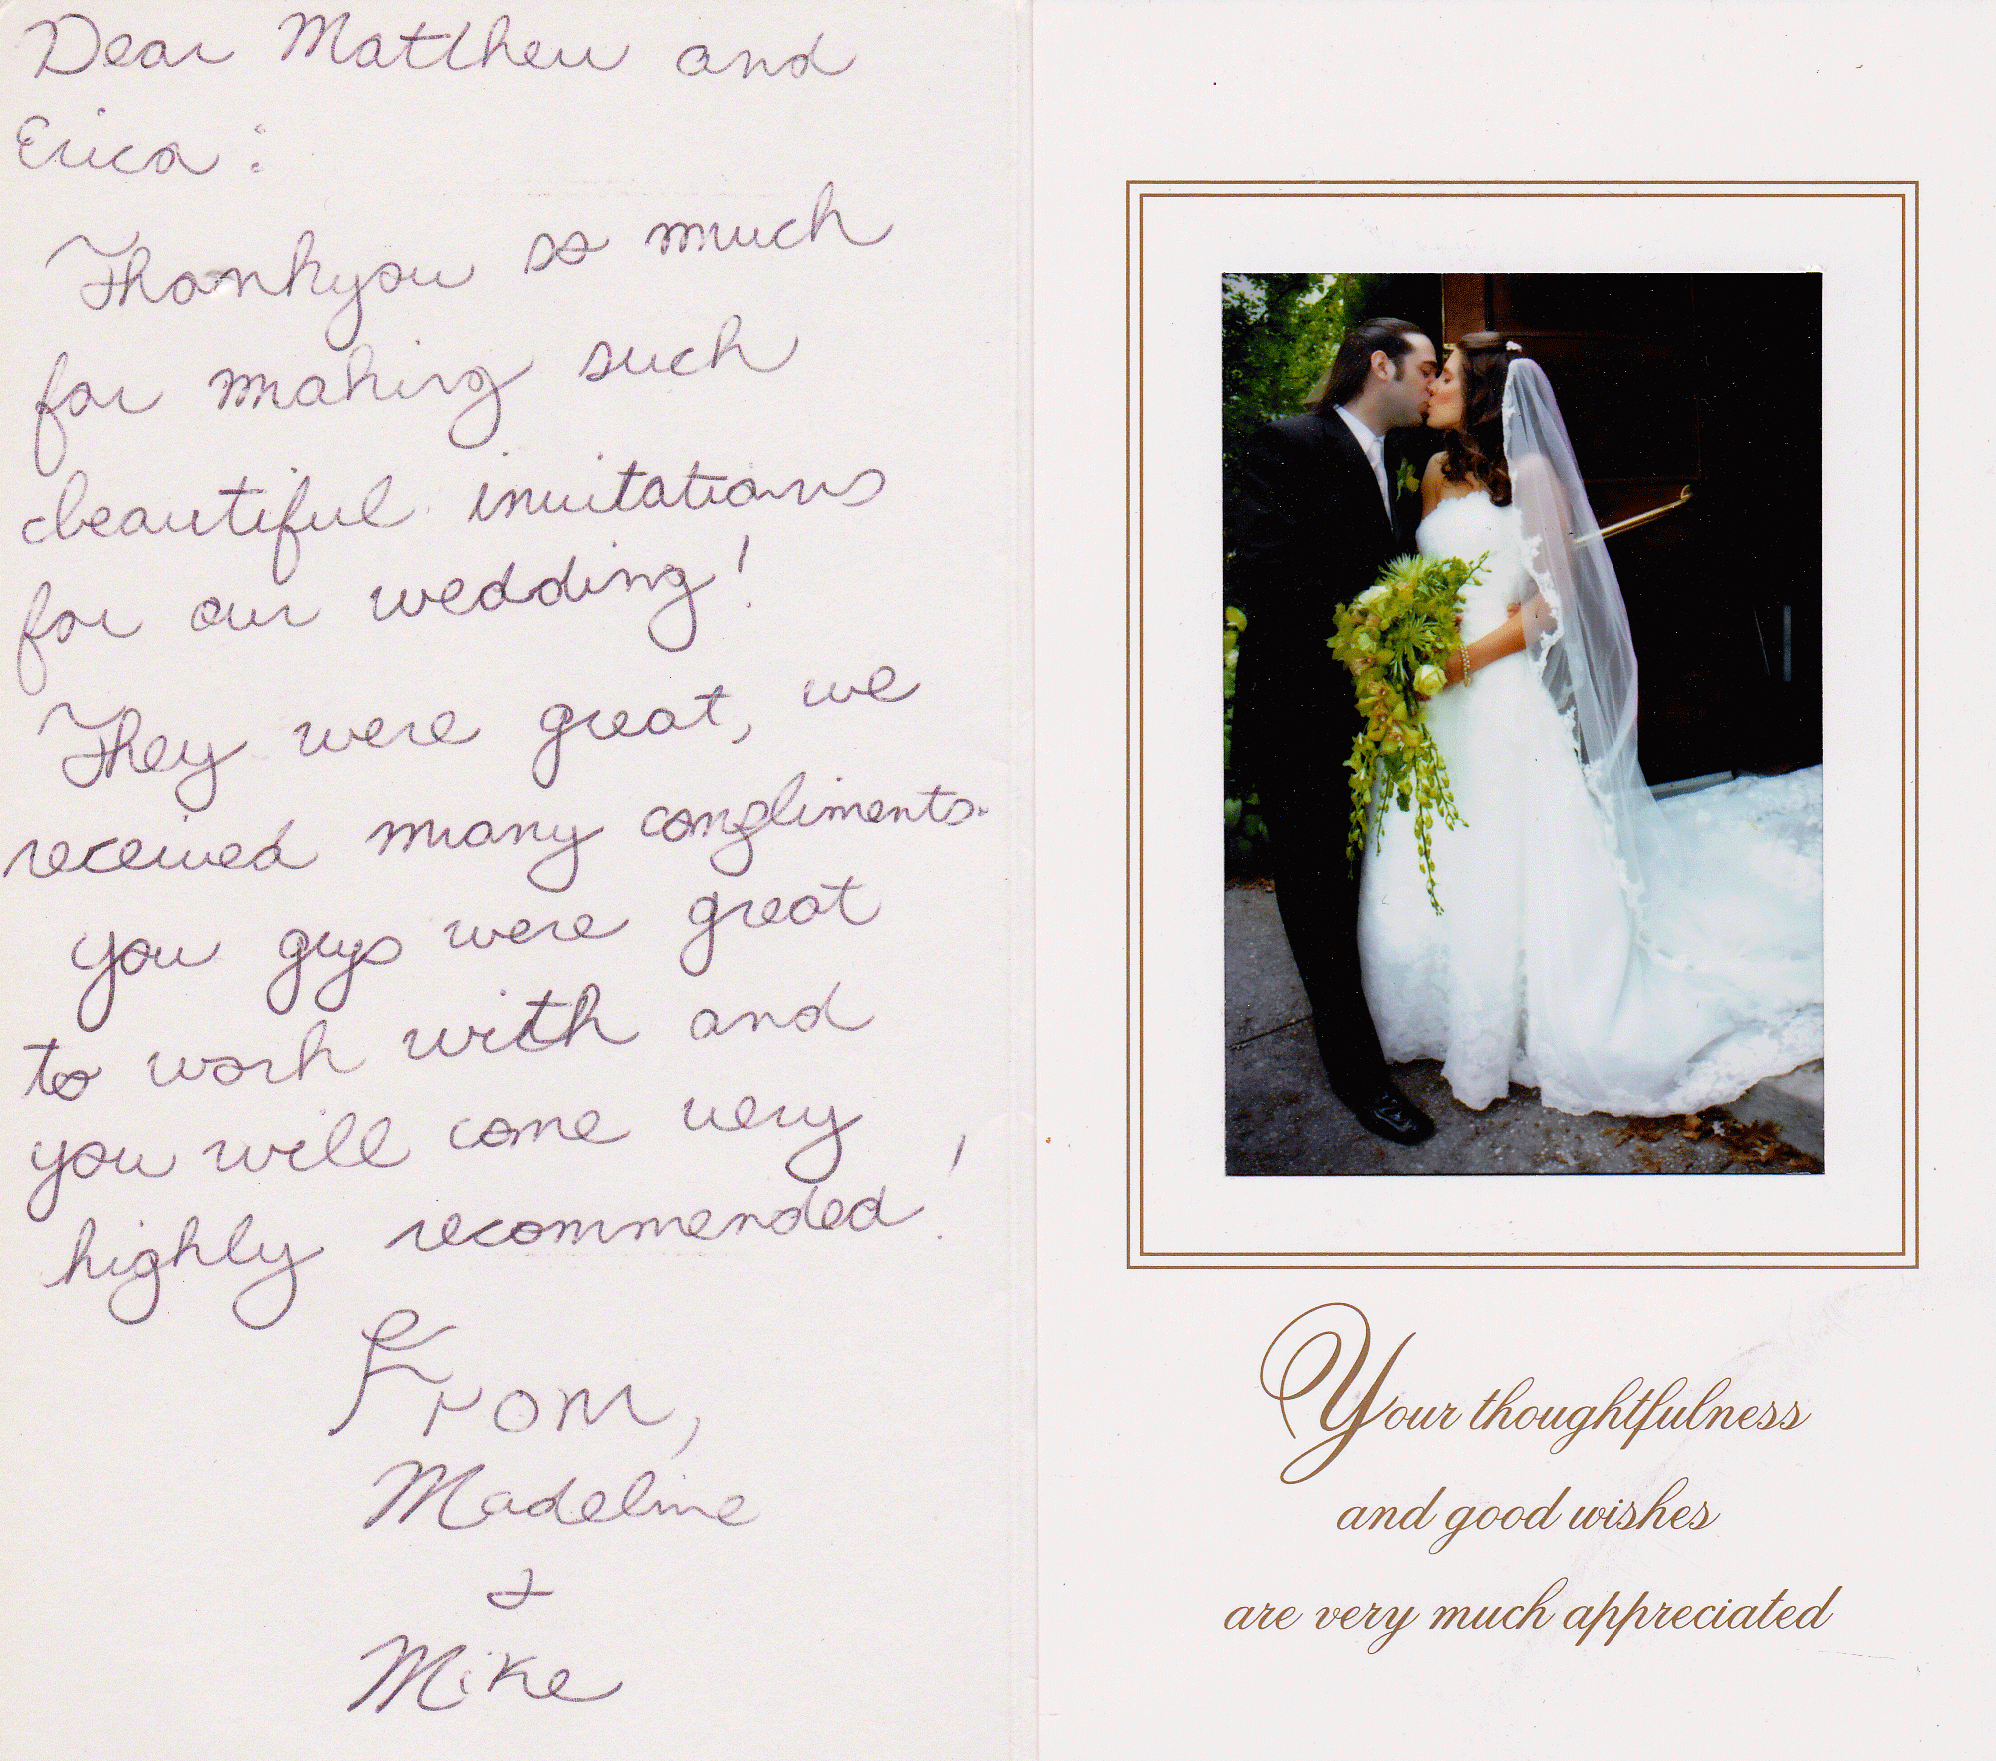 Dear Matthew and
Erica:
Thankyou so much
for making such
beautiful invitations
for our wedding!
They were great, we
received many compliments.
You guys were great
to work with and
you will come very
highly recommended!
From,
Madeline
&
Mike
Your thoughtfulness
and good wishes
are very much appreciated